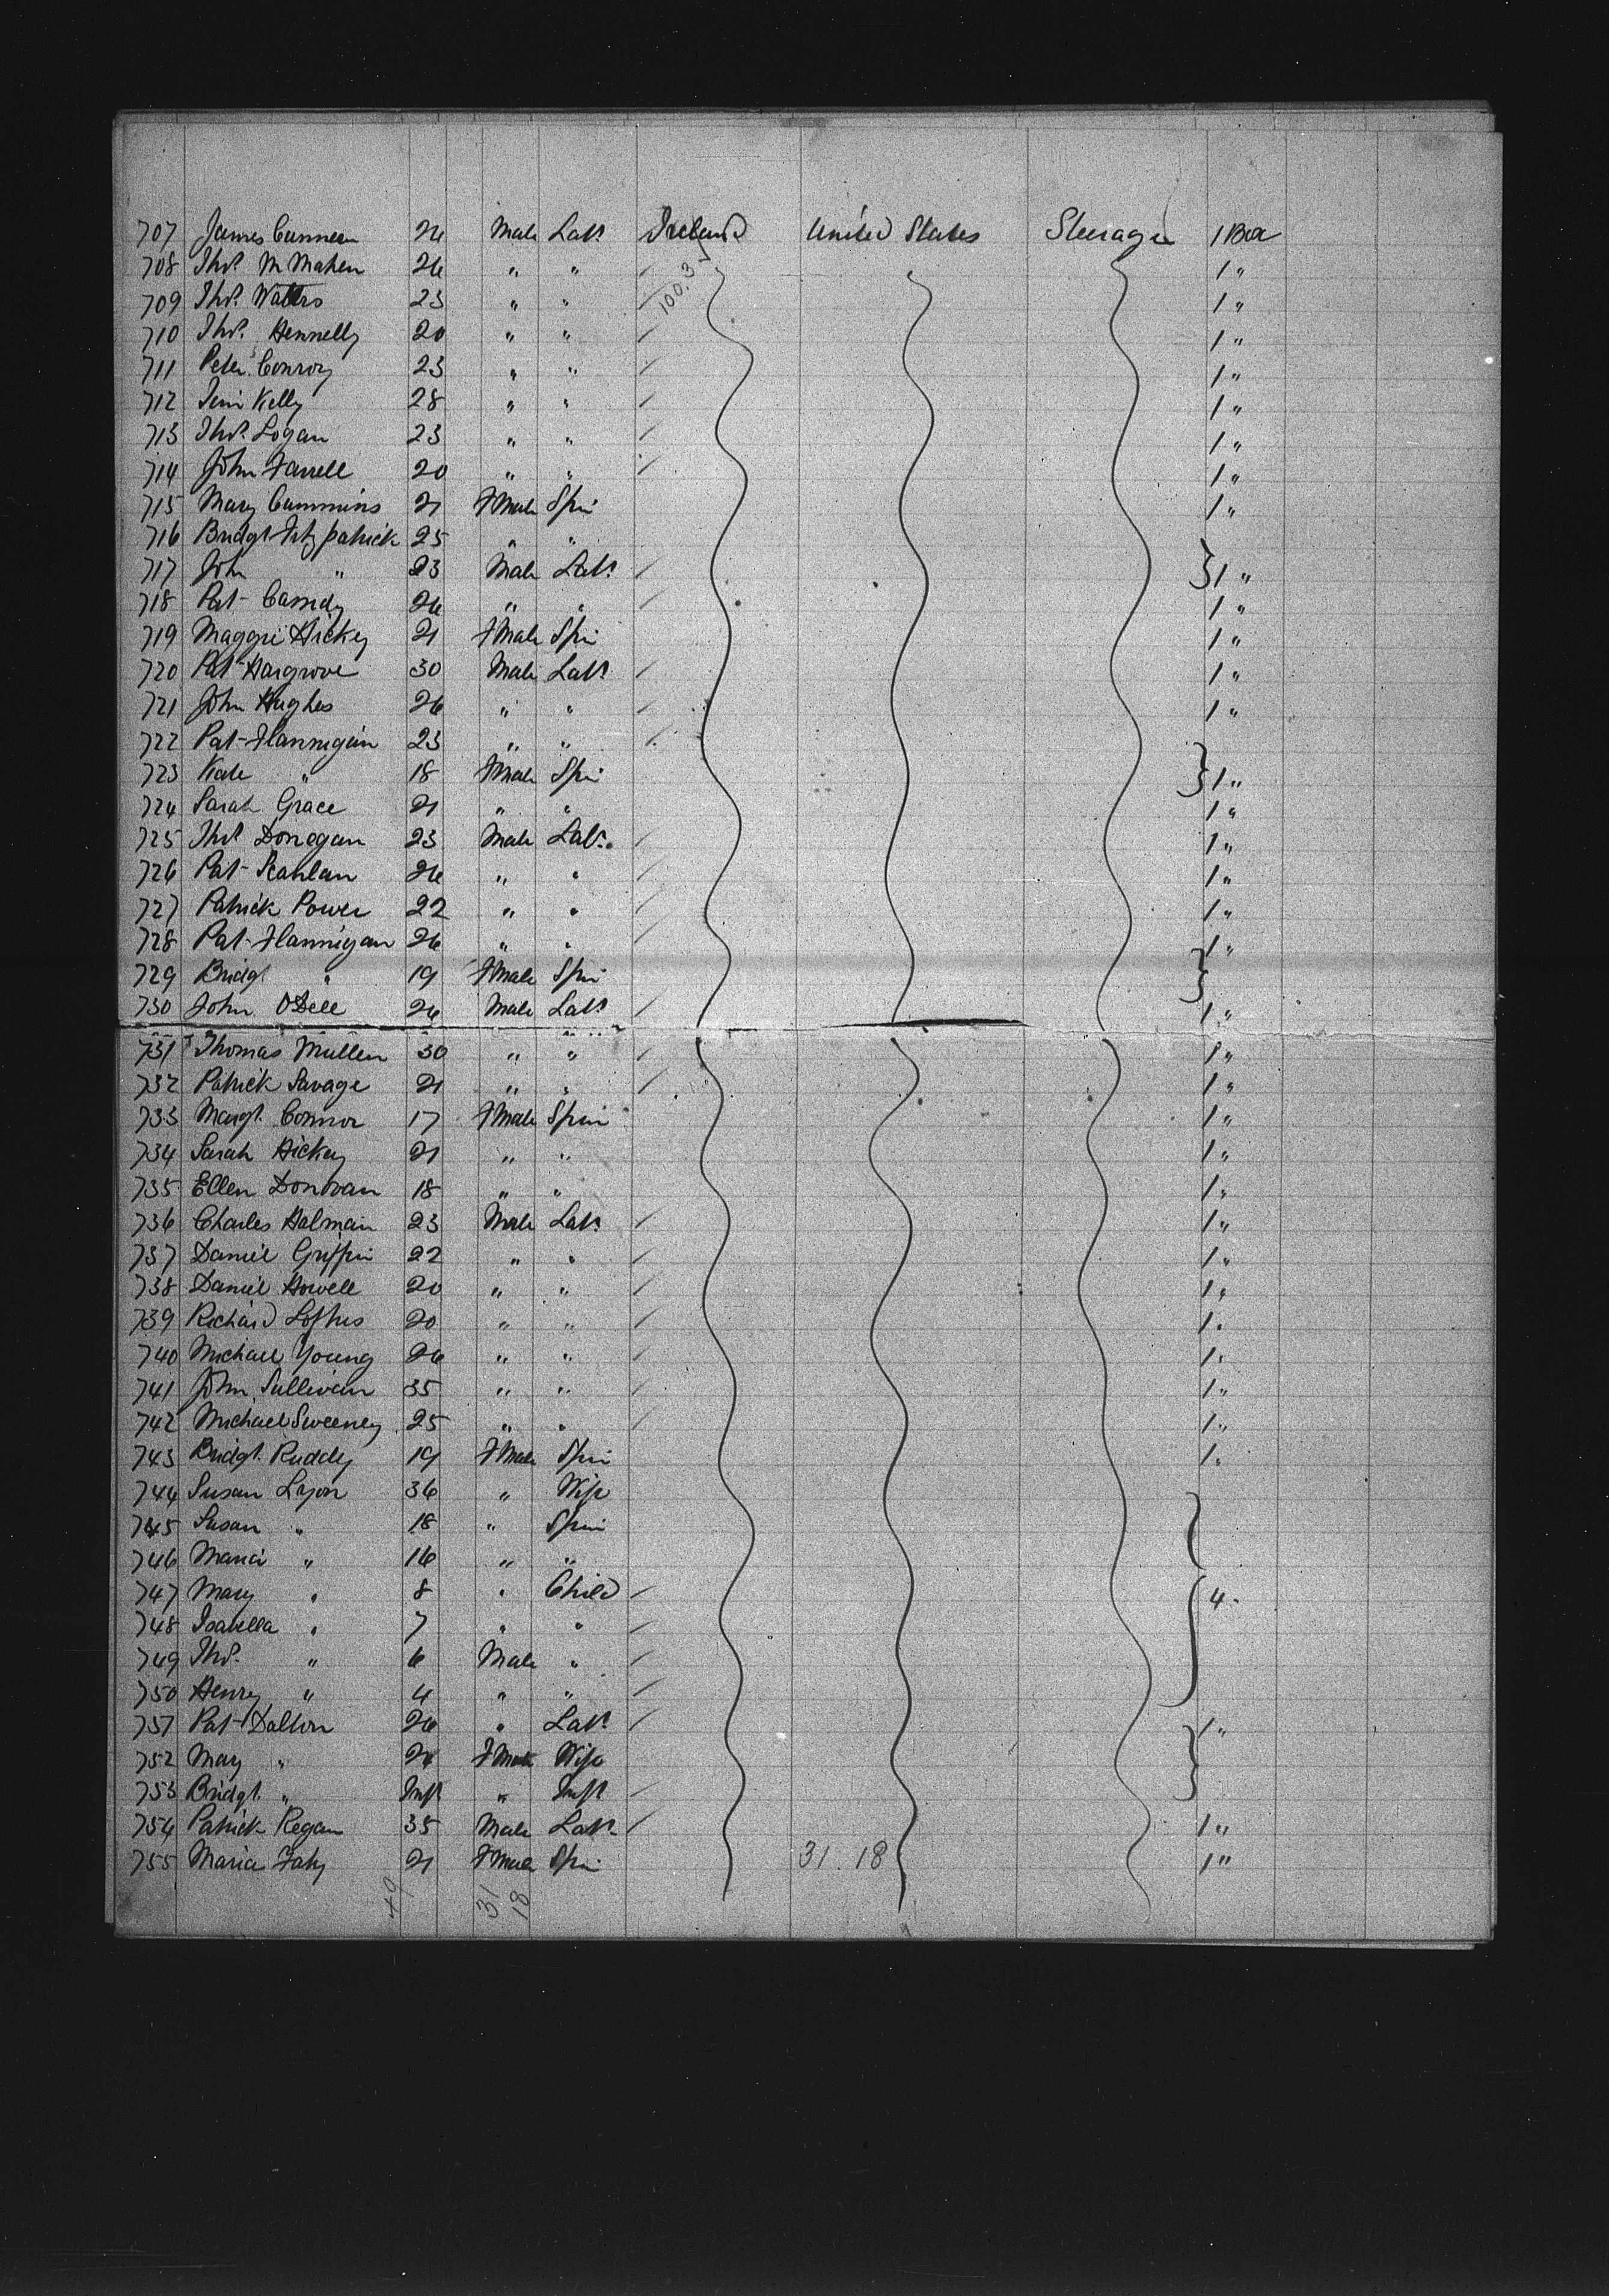 707 James Cunneen 26 Male Labr Ireland United States Steerage 1 Box
708 Thos. McMahen 26 " " 1 "
709 Thos. Watters 23 " " 100.3 1 "
710 Thos. Hennelly 20 " " 1 "
711 Peter Conroy 23 " " 1 "
712 Jim Kelly 28 " " 1 "
713 Thos. Logan 23 " " 1 "
714 John Farrell 20 " " 1 "
715 Mary Cummins 21 FMale Spin 1 "
716 Bridgt Fitzpatrick 25 " "
717 John " 23 Male Labr 1 "
718 Pat Cassidy 26 " " 1 "
719 Maggie Hickey 21 FMale Spin 1 "
720 Pat Hargrove 30 Male Labr 1 "
721 John Hughes 26 " " 1 "
722 Pat Flannigan 23 " "
723 Kate " 18 FMale Spin 1 "
724 Sarah Grace 21 " " 1 "
725 Thos Donegan 23 Male Labr. 1 "
726 Pat Scanlan 26 " " 1 "
727 Patrick Power 22 " " 1 "
728 Pat Flannigan 26 " " 1 "
729 Bridgt " 19 FMale Spin
730 John ODell 26 Male Labr 1 "
731 Thomas Mullen 30 " " 1 "
732 Patrick Savage 21 " " 1 "
733 Margt. Connor 17 FMale Spin 1 "
734 Sarah Hickey 21 " " 1 "
735 Ellen Donovan 18 " " 1 "
736 Charles Halman 23 Male Labr 1 "
737 Daniel Griffin 22 " " 1 "
738 Daniel Howell 20 " " 1 "
739 Richard Loftus 20 " " 1 "
740 Michael Young 26 " " 1 "
741 John Sullivan 35 " " 1 "
742 Michael Sweeney 25 " " 1 "
743 Bridgt. Ruddy 19 FMale Spin 1 "
744 Susan Lyon 36 " Wife
745 Susan " 18 " Spin
746 Maria " 16 " "
747 Mary " 8 " Child 4 "
748 Isabella " 7 " "
749 Thos. " 6 Male "
750 Henry " 4 " "
751 Pat Dalton 26 " Labr 1 "
752 Mary " FMale Wife
753 Bridgt. " Inft " Inft
754 Patrick Regan 35 Male Labr 1 "
755 Maria Fahy 21 FMale Spin 31. 18 1 "
49 31 18